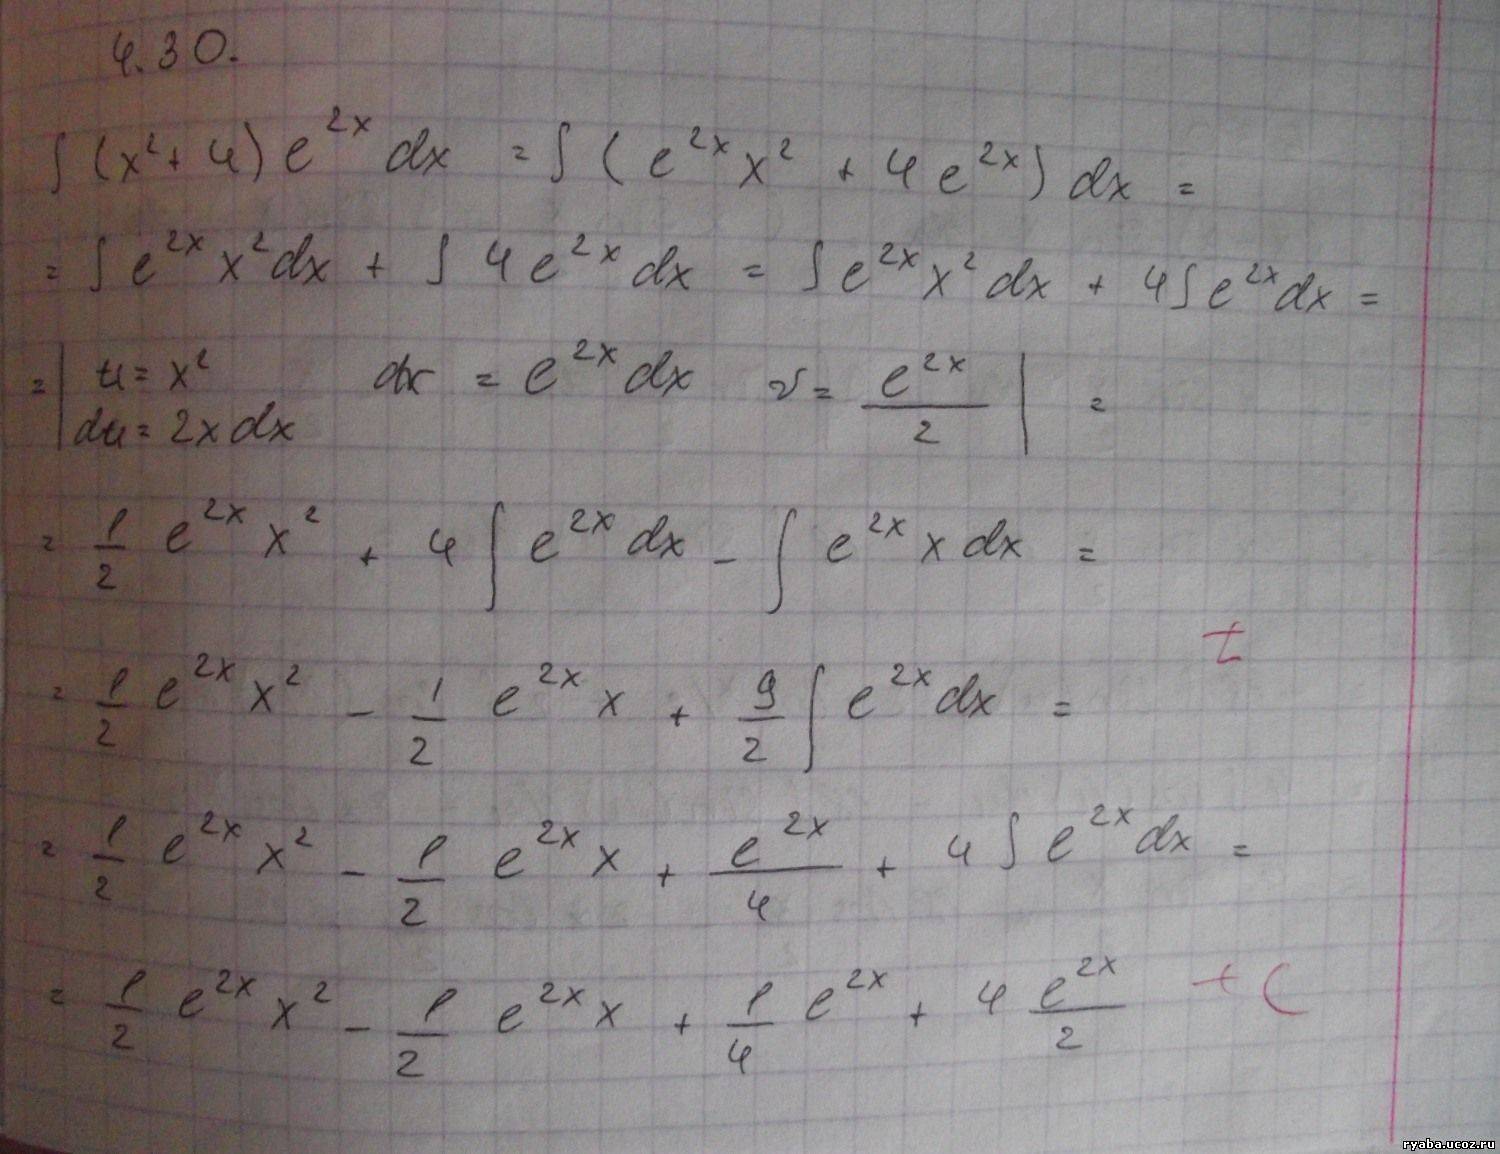 4.30.
∫(x²+4)e^{2x}dx = ∫(e^{2x}x² + 4e^{2x})dx =
= ∫e^{2x}x²dx + ∫4e^{2x}dx = ∫e^{2x}x²dx + 4∫e^{2x}dx =
= | u = x² dv = e^{2x}dx v = \frac{e^{2x}}{2} | =
du = 2xdx
= \frac{1}{2} e^{2x}x² + 4∫e^{2x}dx - ∫e^{2x}xdx =
= \frac{1}{2} e^{2x}x² - \frac{1}{2} e^{2x}x + \frac{9}{2}∫e^{2x}dx =
= \frac{1}{2} e^{2x}x² - \frac{1}{2} e^{2x}x + \frac{e^{2x}}{4} + 4∫e^{2x}dx =
= \frac{1}{2} e^{2x}x² - \frac{1}{2} e^{2x}x + \frac{1}{4} e^{2x} + 4\frac{e^{2x}}{2} + C
ryaba.ucoz.ru